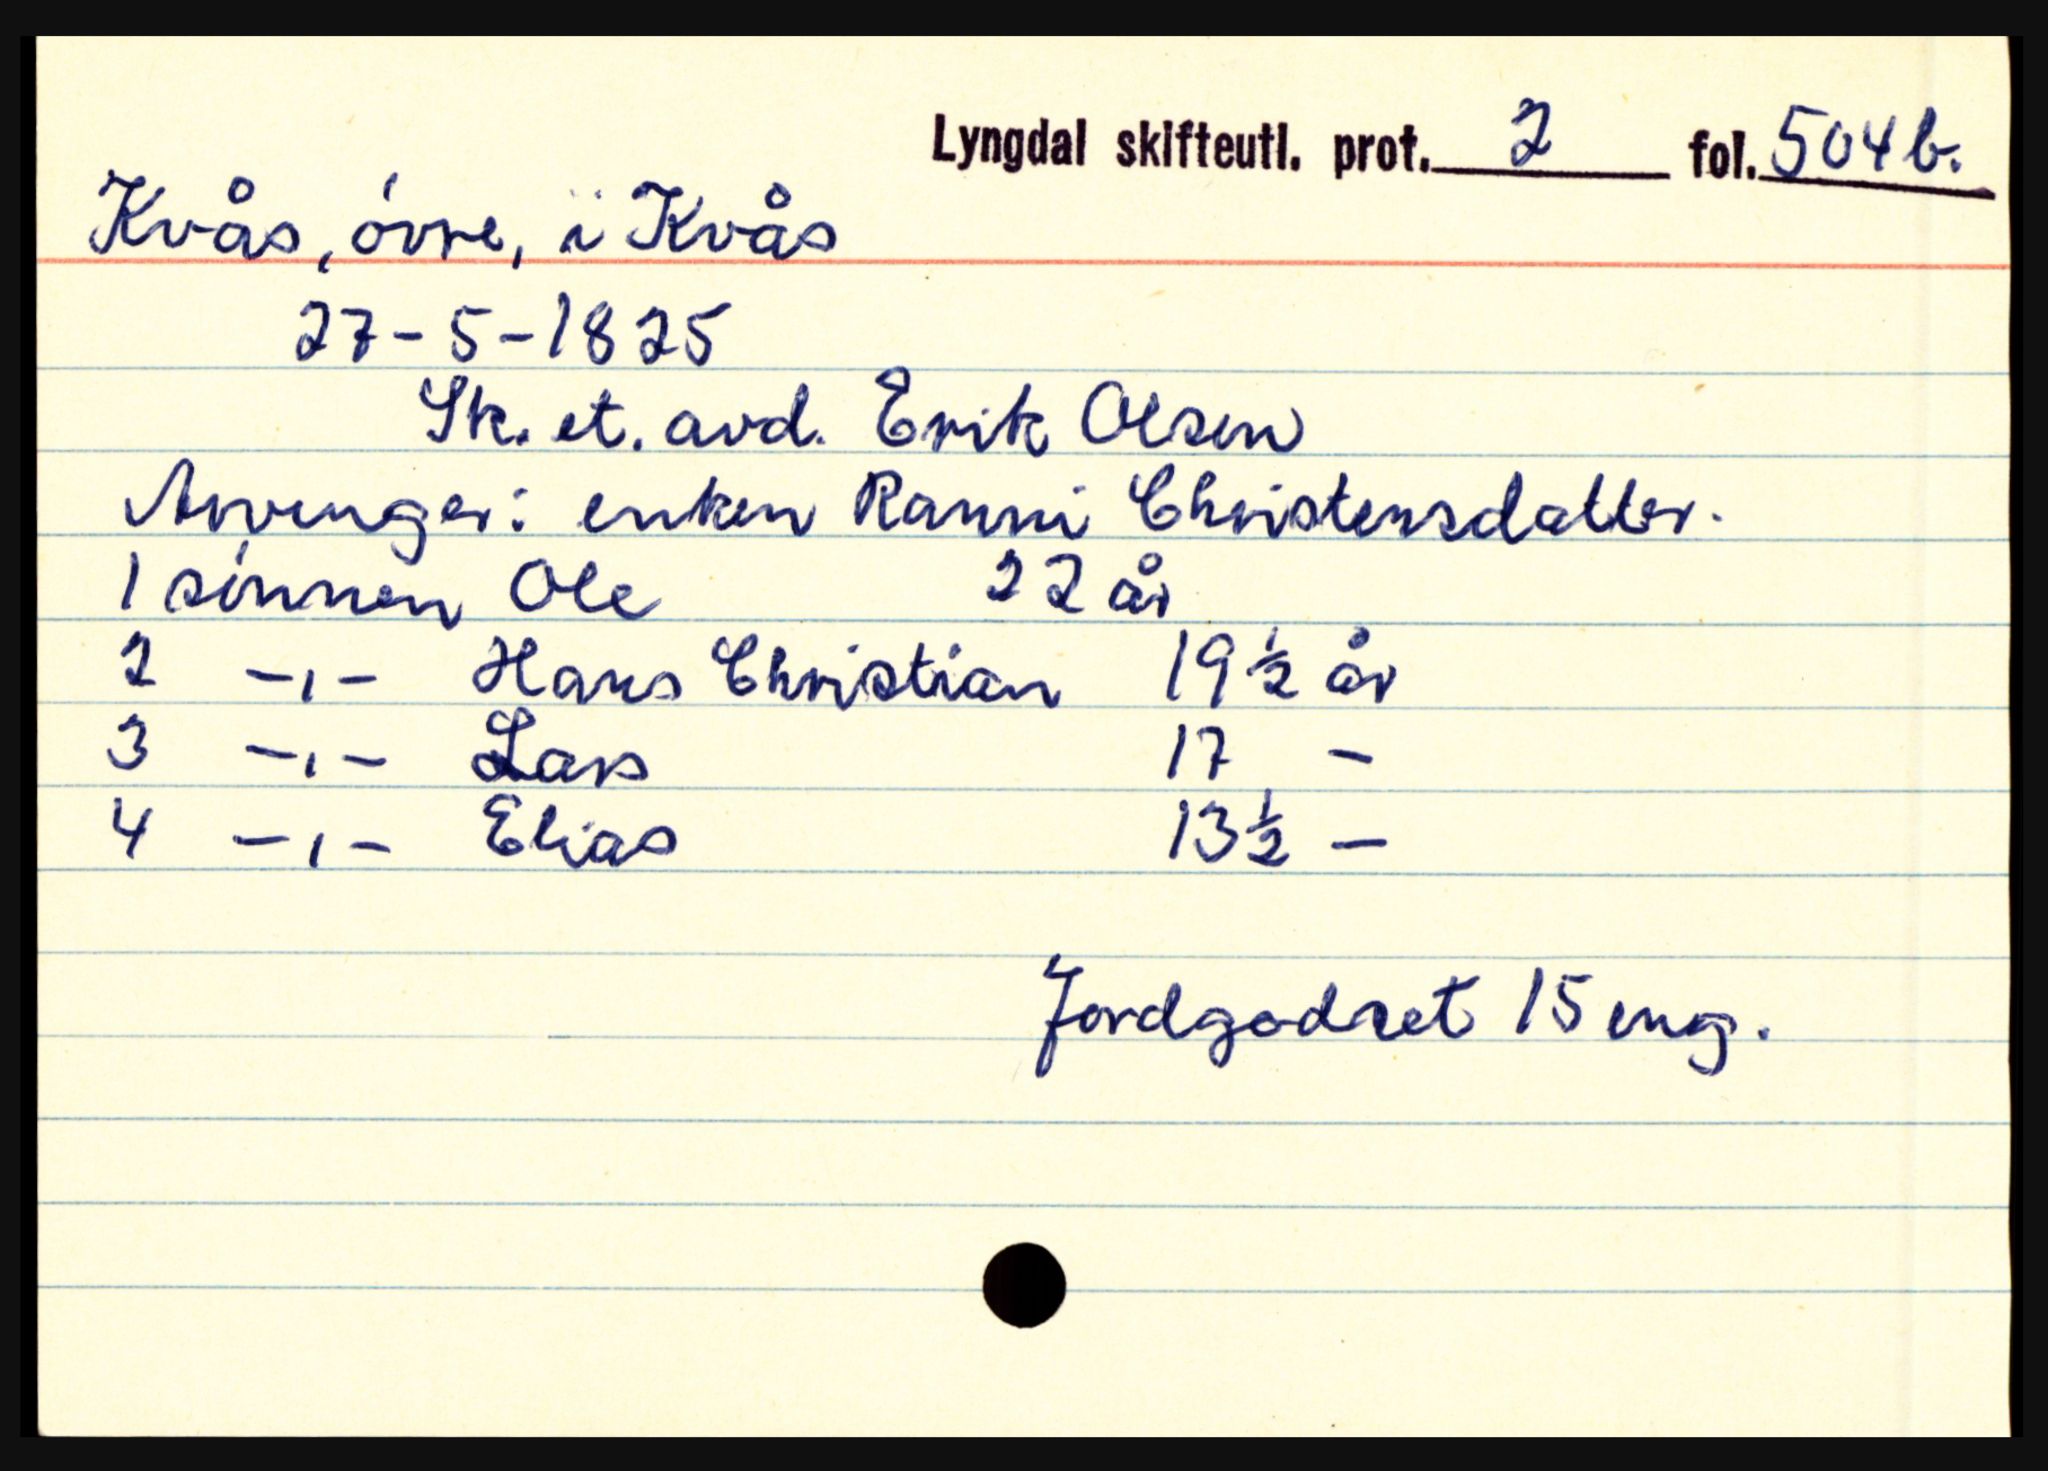 Lyngdal skifteutl. prot. 2 fol. 504 b.
Kvås, óvre, i Kvås
27-5-1825
Sk. et. avd. Erik Olsen
Arvinger: enken Ranni Christensdatter.
1 sónnen Ole 22 år
2 -,- Hans Christian 19 ½ år
3 -,- Lars 17 -
4 -,- Elias 13 ½ -
Jordgodset 15 eng.